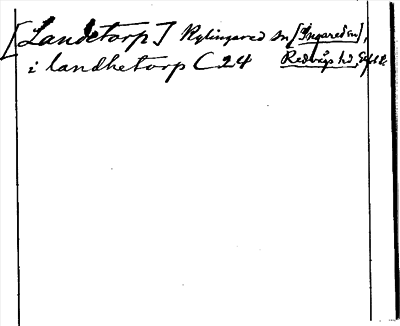 [Landetorp] Kylingared sn [Ingared sn],
i landhetorp C 24 Redvägs hd,